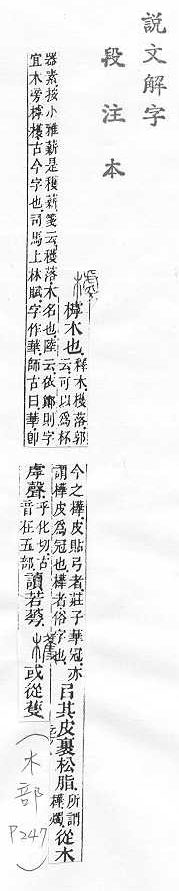 說文解字
段注本
㯉木也釋木檴落郭
云可以爲杯
器素按小雅薪是穫薪箋云穫落木名也陸云依鄭則字
宜木旁㯉檴古今字也司馬上林賦字作華師古曰華卽
今之樺皮貼弓者莊子華冠亦
謂樺皮爲冠也樺者俗字也
㠯其皮裹松脂所謂
樺燭從木
虖聲乎化切古
音在五部讀若華檴或從蒦
(木部 P247)